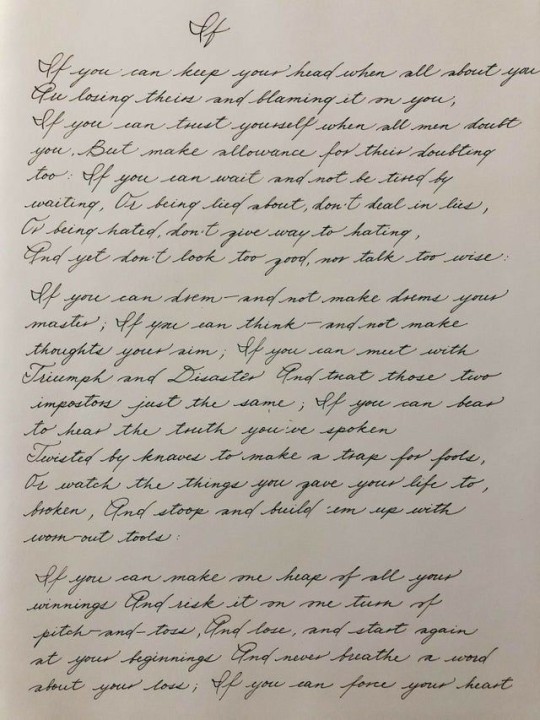 If
If you can keep your head when all about you
Are losing theirs and blaming it on you,
If you can trust yourself when all men doubt
you, But make allowance for their doubting
too: If you can wait and not be tired by
waiting, Or being lied about, don't deal in lies,
Or being hated, don't give way to hating,
And yet don't look too good, nor talk too wise:
If you can drem—and not make drems your
master; If you can think—and not make
thoughts your aim; If you can meet with
Triumph and Disaster And treat those two
impostors just the same; If you can bear
to hear the truth you've spoken
Twisted by knaves to make a trap for fools,
Or watch the things you gave your life to,
broken, And stoop and build 'em up with
worn-out tools:
If you can make one heap of all your
winnings And risk it on one turn of
pitch-and-toss, And lose, and start again
at your beginnings And never breathe a word
about your loss; If you can force your heart